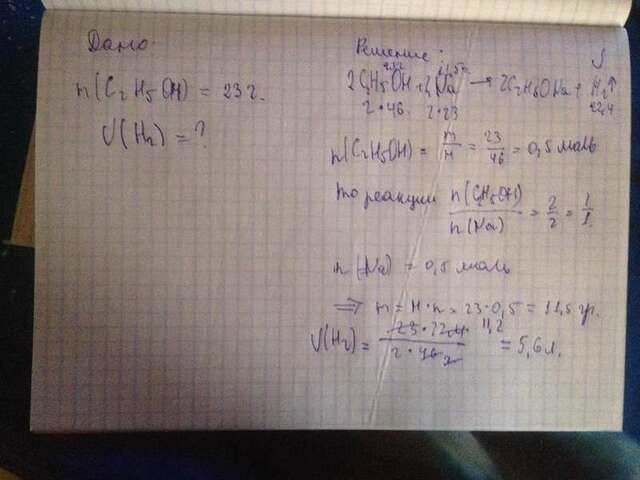 Дано:
m(C₂H₅OH) = 23 г.
V(H₂) = ?
Решение:
2C₂H₅OH + 2Na → 2C₂H₅ONa + H₂↑
2·46 2·23 22,4
n(C₂H₅OH) = m/M = 23/46 = 0,5 моль
по реакции n(C₂H₅OH)/n(Na) = 2/2 = 1/1.
n(Na) = 0,5 моль
⇒ m = M·n = 23·0,5 = 11,5 гр.
V(H₂) = 23·22,4 11,2/2·46 2 = 5,6 л.